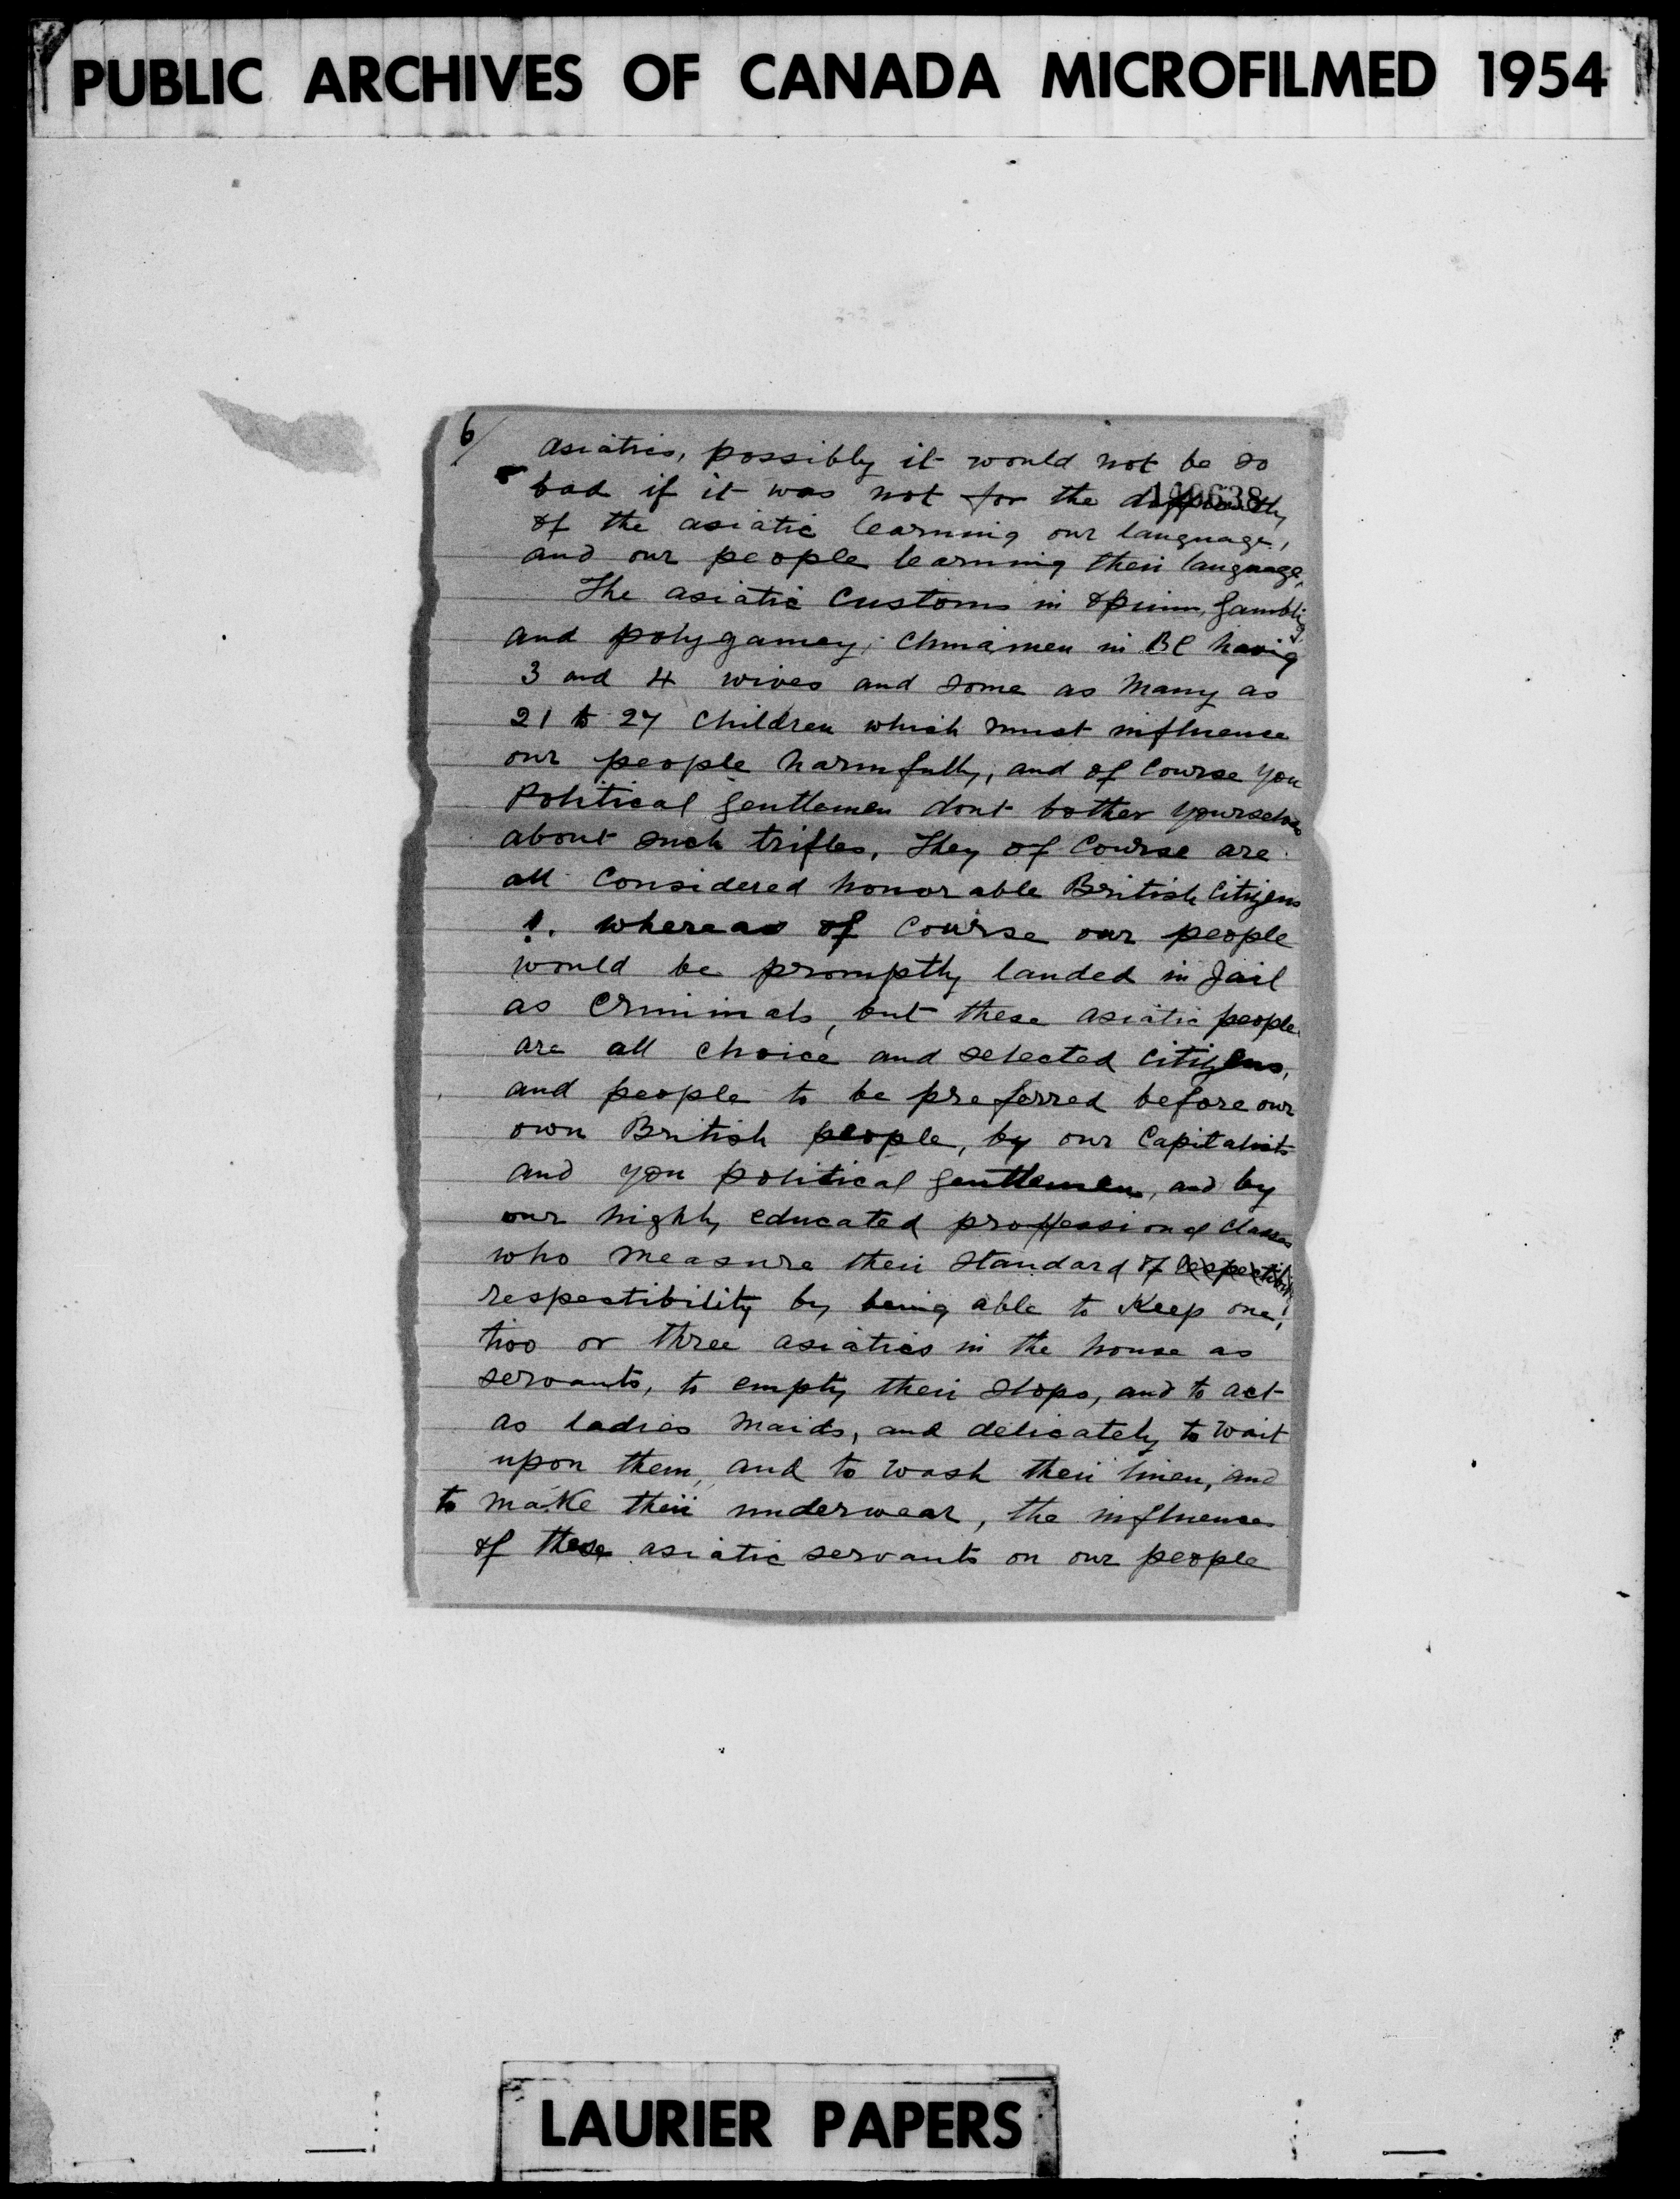 PUBLIC ARCHIVES OF CANADA MICROFILMED 1954
6/
asiatics, possibly it would not be so
bad if it was not for the difficulty
of the asiatic learning our language,
and our people learning their language,
The asiatic Customs in opium, gambling
and polygamey, Chinamen in BC having
3 and 4 wives and some as many as
21 to 27 children which must influence
our people harmfully, and of Course you
Political gentlemen dont bother yourselves
about such trifles, They of Course are
all Considered honorable British Citizens
!. whereas of Course our people
would be promptly landed in Jail
as Criminals, but these asiatic people
are all choice and selected Citizens,
and people to be preferred before our
own British people, by our Capitalists
and you political gentlemen, and by
our highly educated proffessional classes
who measure their standard of respectibility
respectibility by being able to Keep one,
two or three asiatics in the house as
servants, to empty their slops, and to act
as ladies maids, and delicately to wait
upon them, and to wash their linen, and
to make their underwear, the influence
of these asiatic servants on our people
LAURIER PAPERS